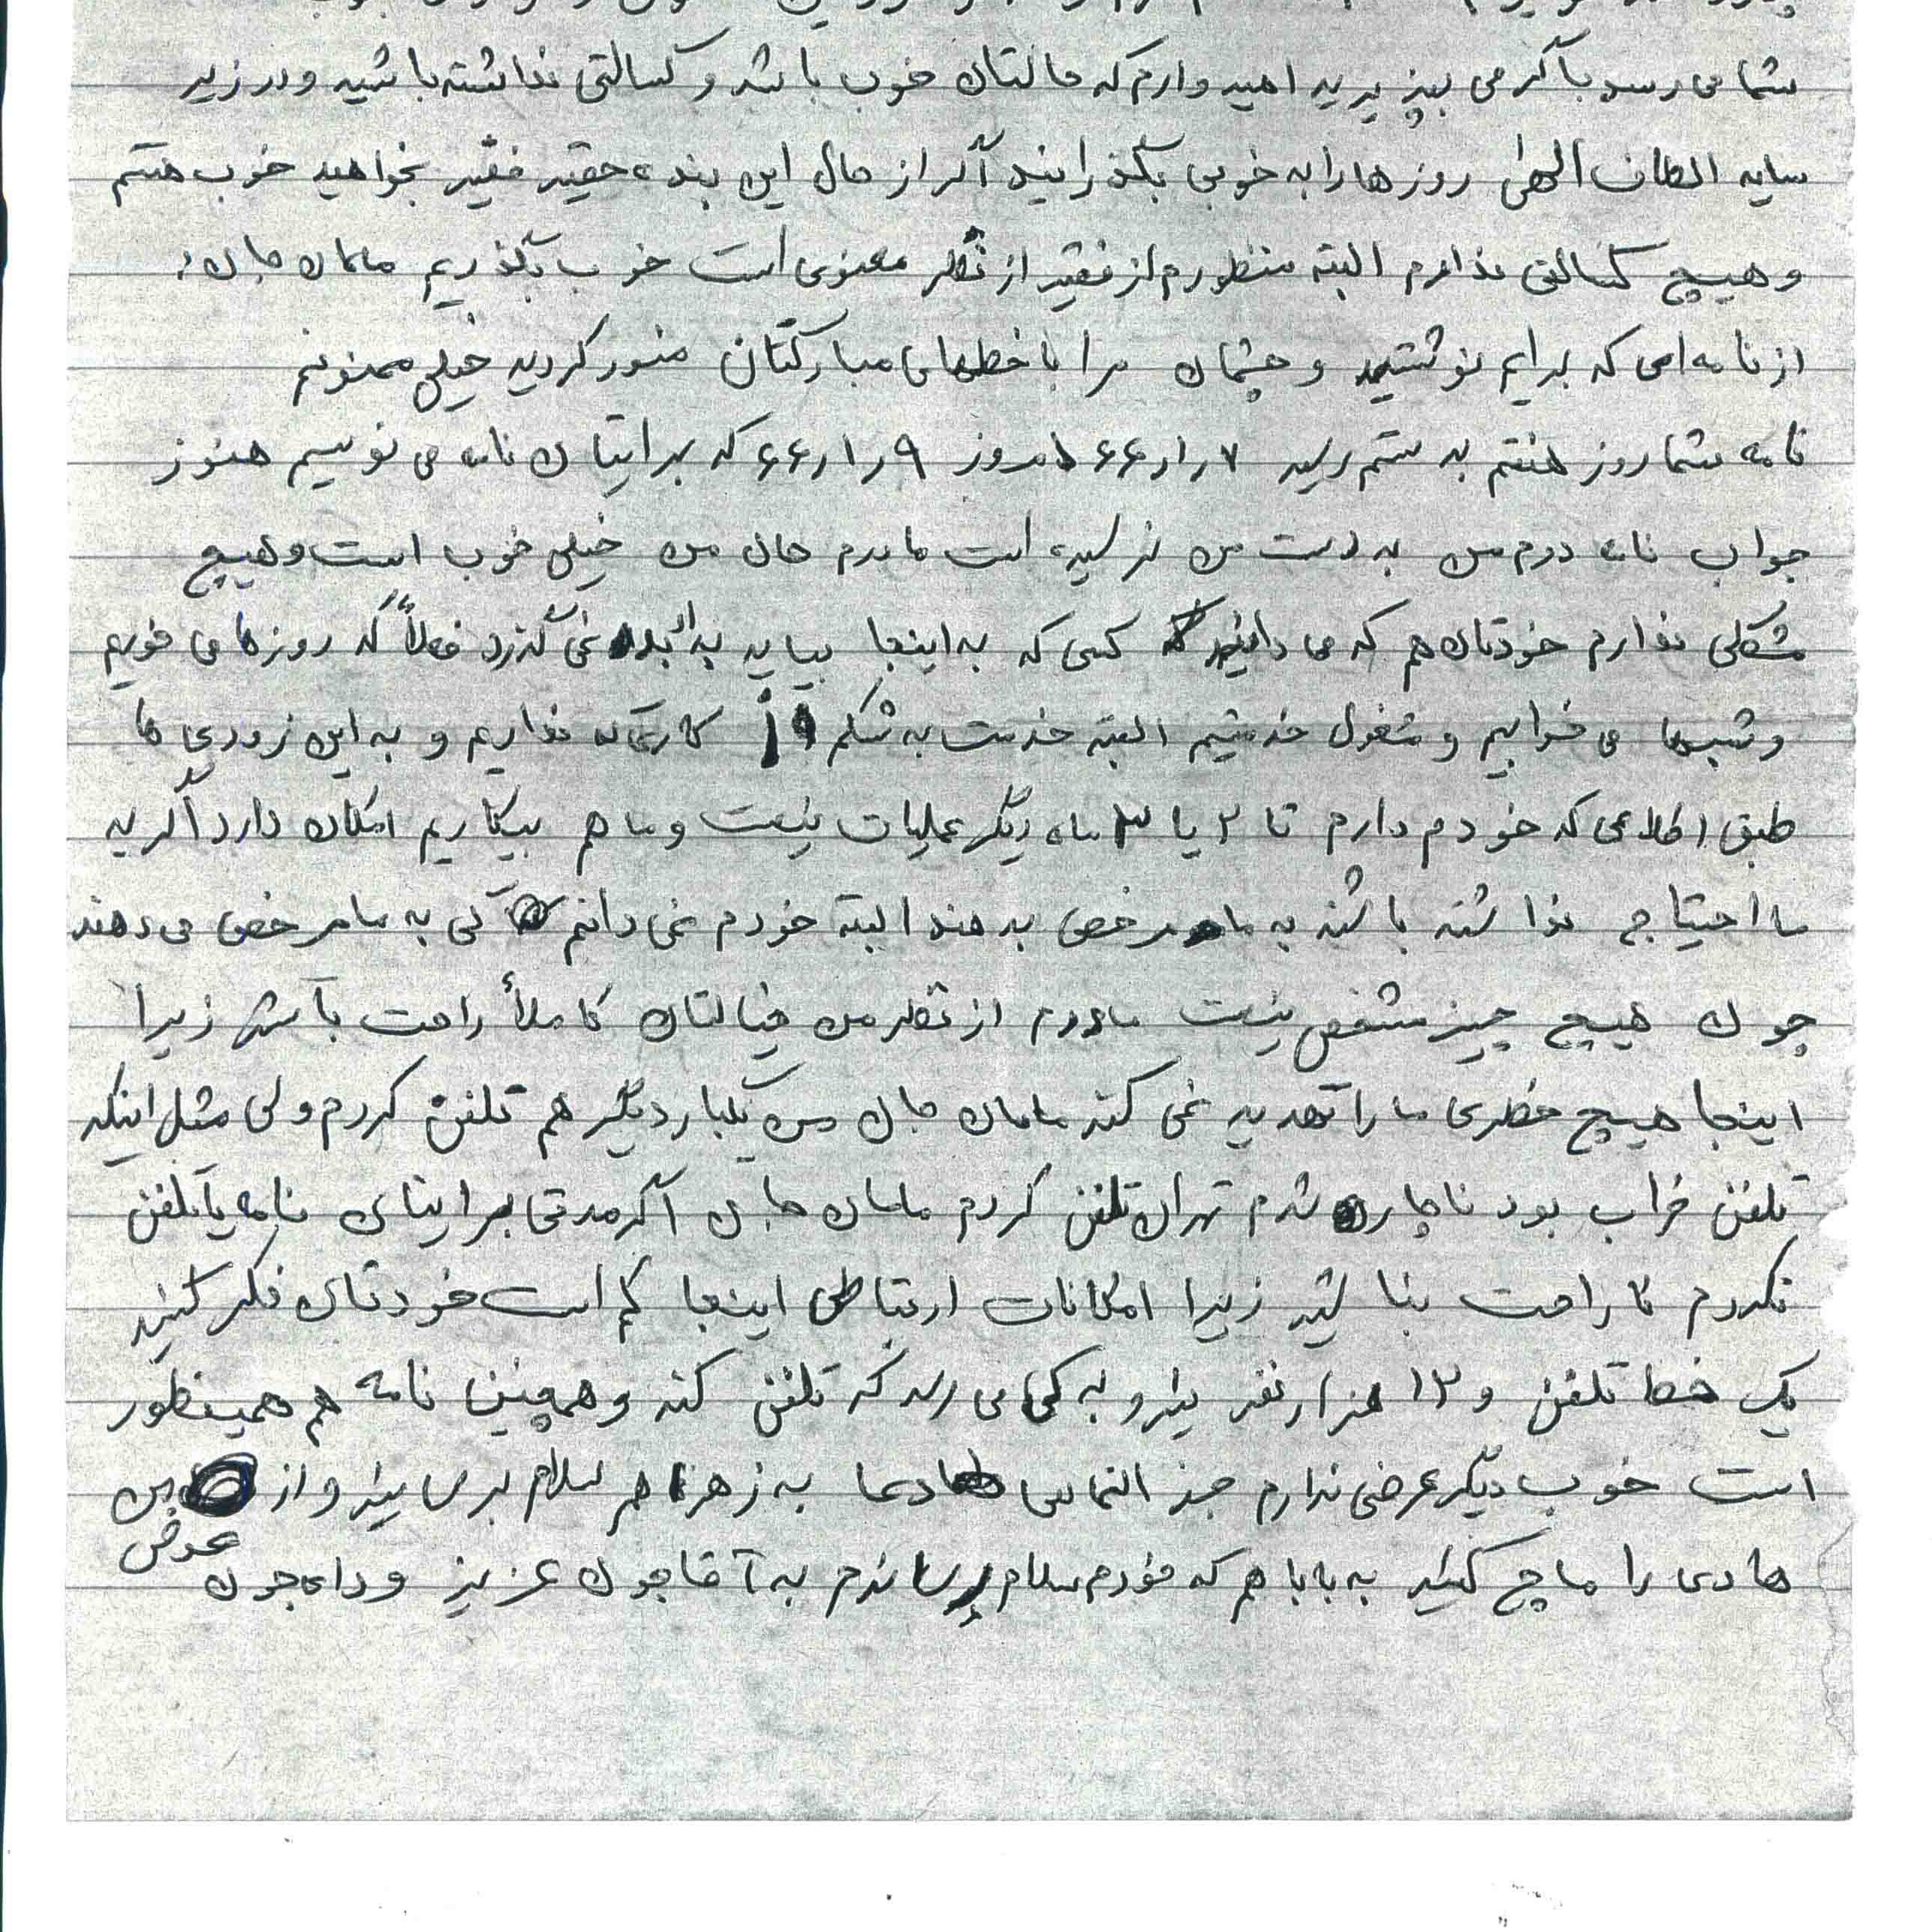 شما می رسد با گرمی بپزیرید امیدوارم که حالتان خوب باشد و کسالتی نداشته باشید و در زیر
سایه الطاف الهی روزها را به خوبی بگذرانید اگر از حال این بنده حقیر فقیر بخواهید خوب هستم
و هیچ کسالتی ندارم البته منظورم از فقیر از نظر معنوی است خوب بگذریم مامان جان
از نامه امی که برایم نوشتید و چشمان مرا با خطهای مبارکتان منور کردید خیلی ممنونم
نامه شما روز هفتم به ستم رسید ۷ر۱ر۶۶ امروز ۹ر۱ر۶۶ که برایتان نامه می نویسم هنوز
جواب نامه دوم من به دست من نرسیده است مادرم حال من خیلی خوب است و هیچ
مشکلی ندارم خودتان هم که می دانید کسی که به اینجا بیاید به بد نمی گذرد فعلاً که روزها می خوریم
و شبها می خوابیم و مشغول خدمتیم البته خدمت به شکم کارتکان نداریم و به این زودی ها
طبق اطلاعی که خودم دارم تا ۲ یا ۳ ماه دیگر عملیات نیست و ما هم بیکاریم امکان دارد اگر به
ما احتیاج نداشته باشند به ما مرخصی بدهند البته خودم نمی دانم کی به ما مرخصی می دهند
چون هیچ چیز مشخص نیست مادرم از نظر من خیالتان کاملاً راحت باشد زیرا
اینجا هیچ خطری ما را تهدید نمی کند مامان جان من یکبار دیگر هم تلفن کردم ولی مثل اینکه
تلفن خراب بود ناچار شدم تهران تلفن کردم مامان جان اگر مدتی برایتان نامه یا تلفن
نکردم ناراحت نباشید زیرا امکانات ارتباطی اینجا کم است خودتان فکر کنید
یک خط تلفن و ۱۲ هزار نفر نیرو به کی می رسد که تلفن کند و همچنین نامه هم همینطور
است خوب دیگر عرضی ندارم جز التماس دعا به زهرا هم سلام برسانید و از من
عوض
هادی را ماچ کنید به بابا هم که خودم سلام برسانم به آقاجون عزیز و دای جون